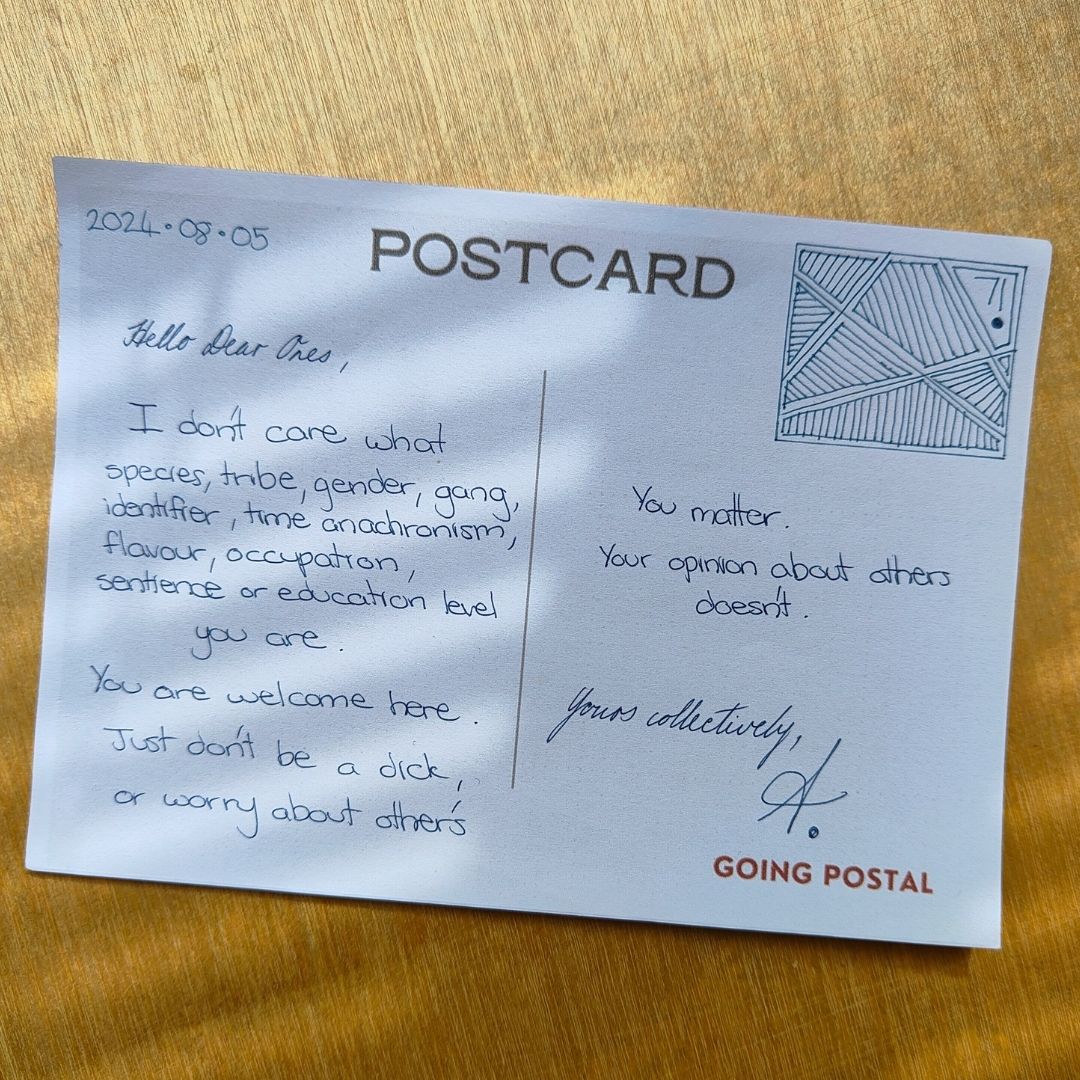 2024.08.05
POSTCARD
71
Hello Dear Ones,
I don't care what
species, tribe, gender, gang,
identifier, time anachronism,
flavour, occupation,
sentience or education level
you are.
You are welcome here.
Just don't be a dick,
or worry about other's
You matter.
Your opinion about others
doesn't.
Yours collectively,
A.
GOING POSTAL